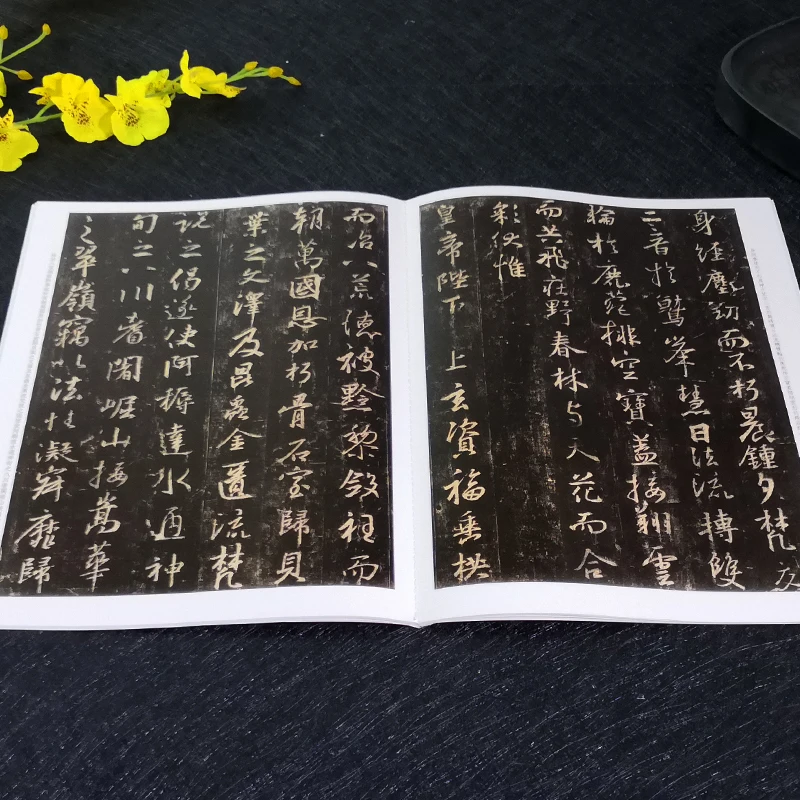 身經塵劫而不朽晨鍾夕梵交
二音於鷲峯慧日法流轉雙
輪於鹿菀排空寶蓋接翔雲
而共飛莊野春林与天花而合
彩伏惟
皇帝陛下 上玄資福垂拱
而治八荒德被黔黎斂衽而
朝萬國恩加朽骨石室歸貝
葉之文澤及昆蟲金匱流梵
說之偈遂使阿耨達水通神
甸之八川耆闍崛山接嵩華
之翠嶺竊以法性凝寂靡歸